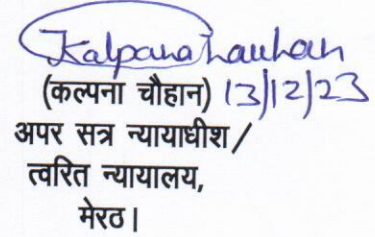 Kalpana Chauhan
(कल्पना चौहान) 13/12/23
अपर सत्र न्यायाधीश /
त्वरित न्यायालय,
मेरठ।